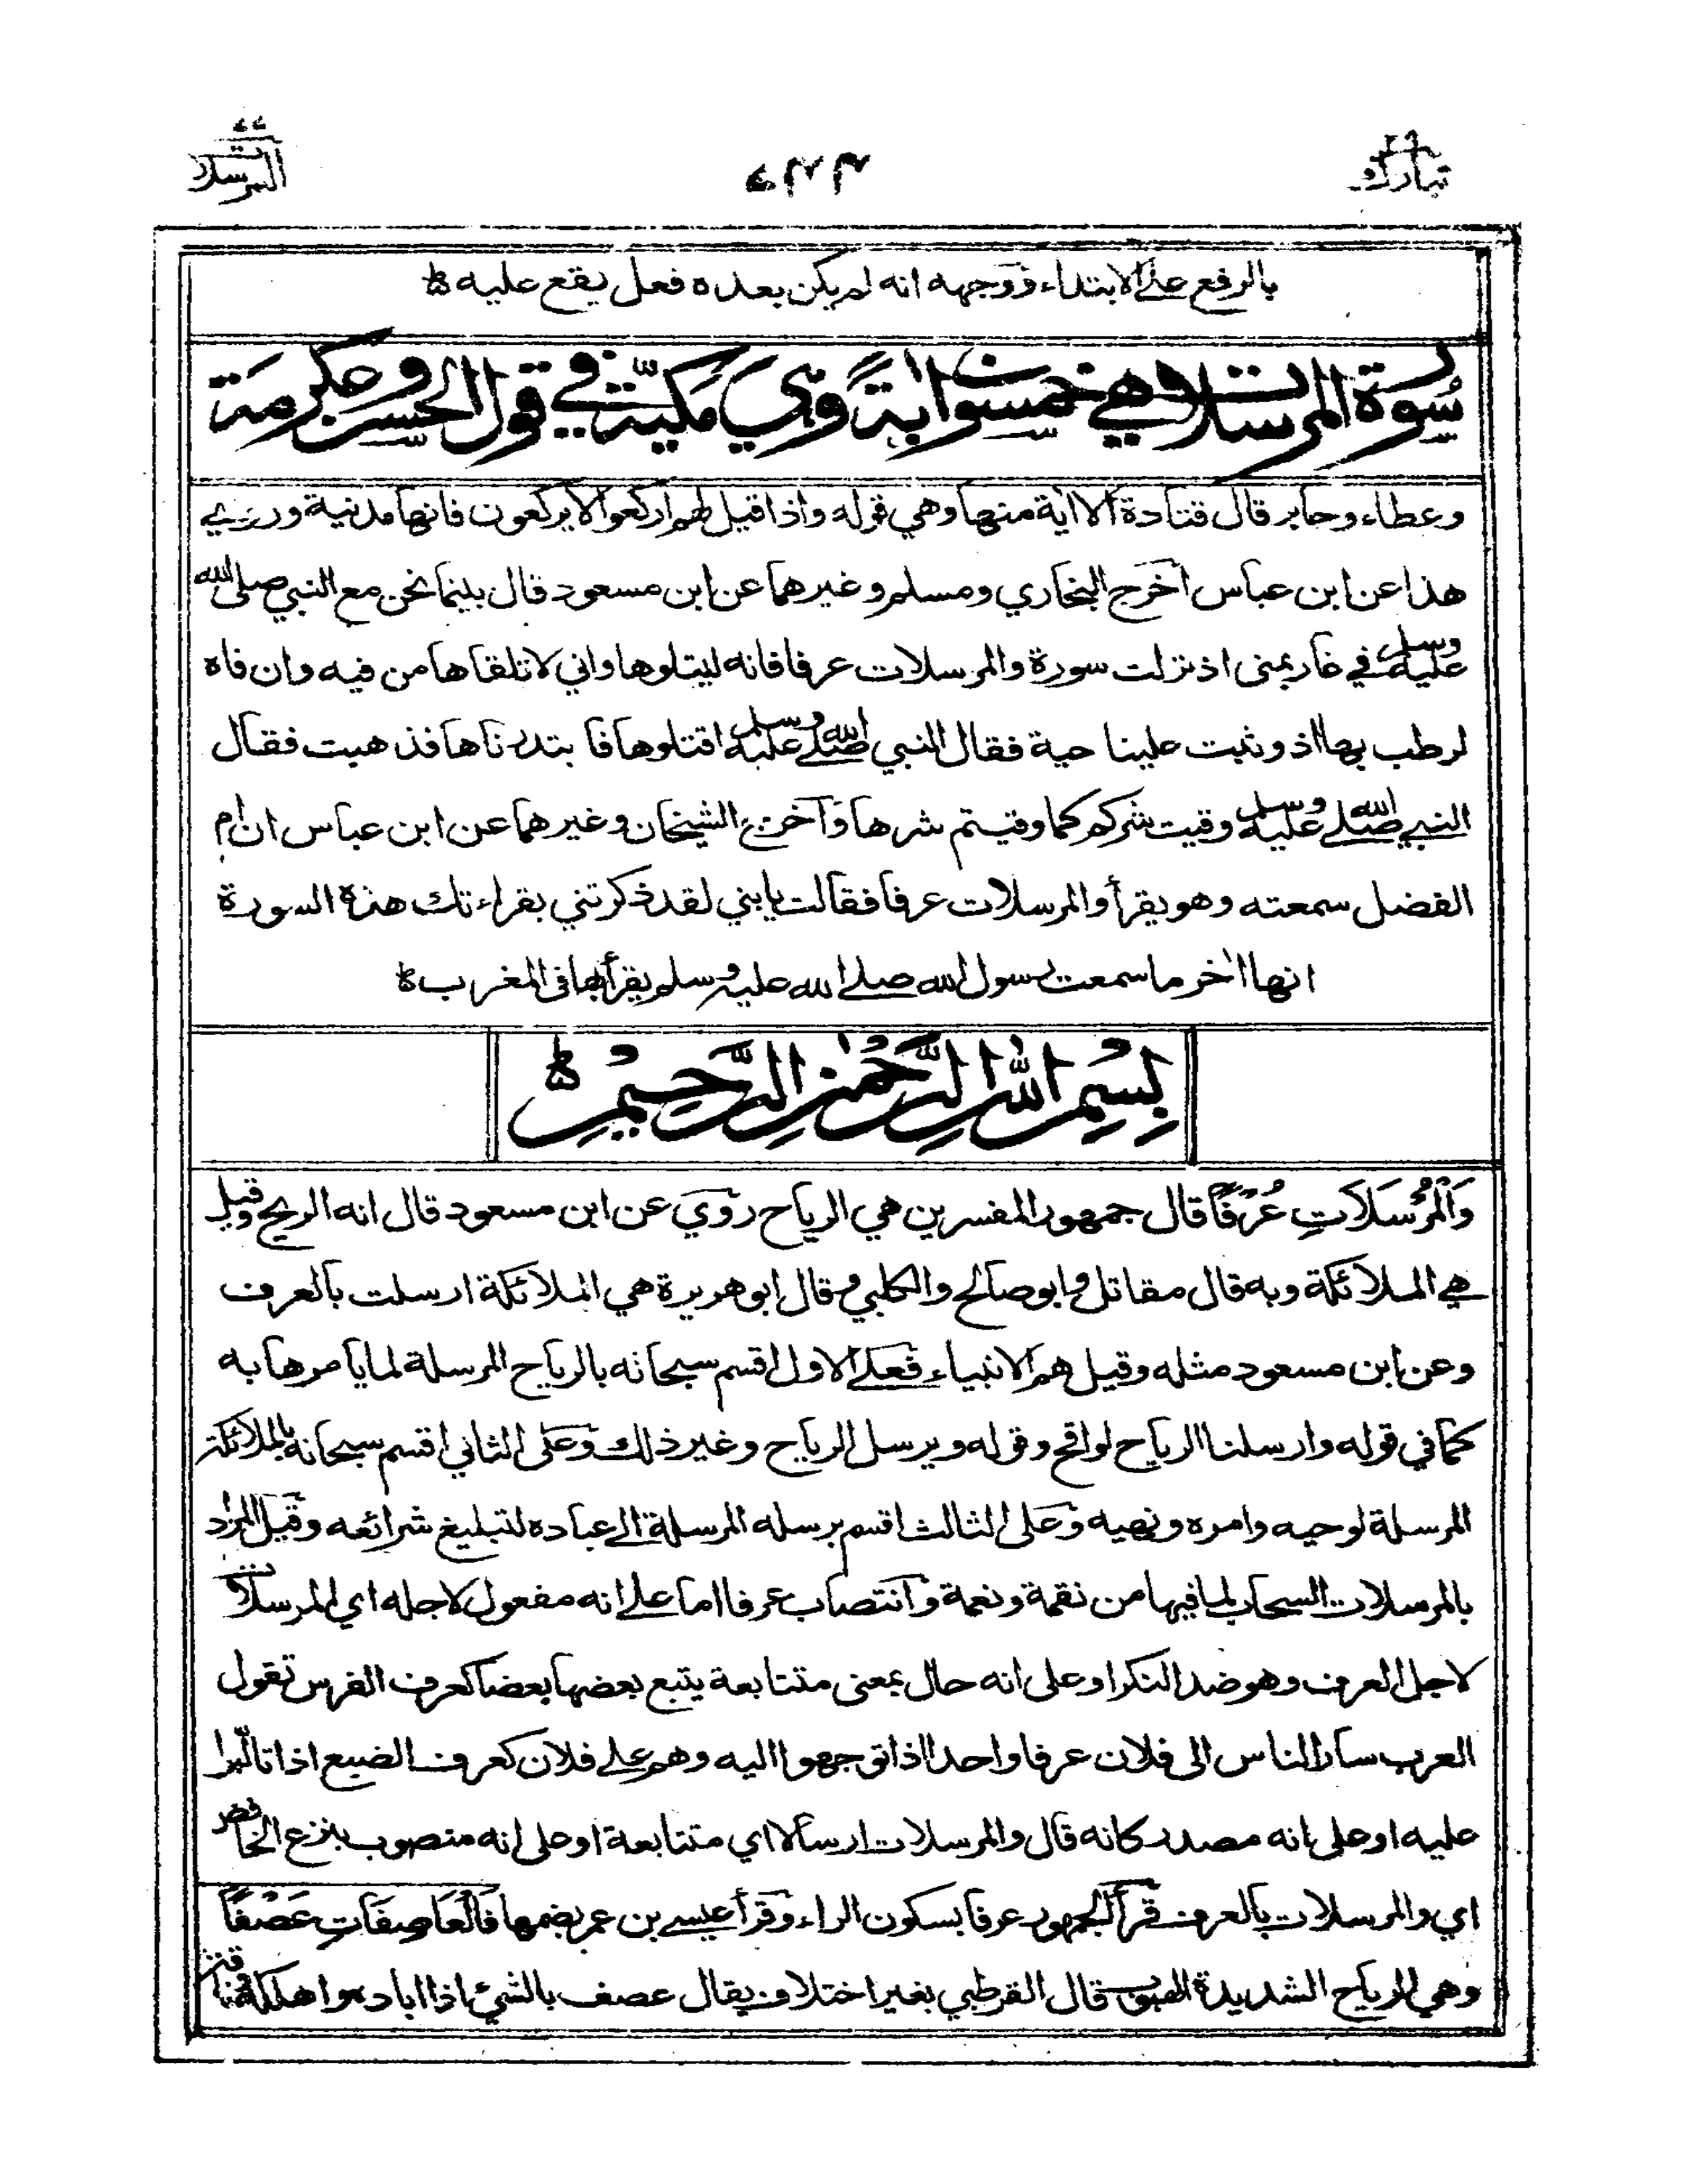 تبارك ٢٩
٤٣٣
المرسلات ٧٧
بالرفع على الابتداء ووجهه انه لم يكن بعده فعل يقع عليه
سورة المرسلات وهي خمسون اية وهي مكية في قول الحسن وعكرمة
وعطاء وجابر قال قتادة الا اية منها وهي قوله واذا قيل لهم اركعوا لا يركعون فانها مدنية وروي
هذا عن ابن عباس اخرج البخاري ومسلم وغيرهما عن ابن مسعود قال بينما نحن مع النبي صلى الله
عليه وسلم في غار بمنى اذ نزلت سورة والمرسلات عرفا فانه ليتلوها واني لاتلقاها من فيه وان فاه
لرطب بها اذ وثبت علينا حية فقال النبي صلى الله عليه وسلم اقتلوها فابتدرناها فذهبت فقال
النبي صلى الله عليه وسلم وقيت شركم كما وقيتم شرها واخرج الشيخان وغيرهما عن ابن عباس ان ام
الفضل سمعته وهو يقرأ والمرسلات عرفا فقالت يا بني لقد ذكرتني بقراءتك هذه السورة
انها اخر ما سمعت رسول الله صلى الله عليه وسلم يقرأ بها في المغرب
بِسْمِ اللهِ الرَّحْمٰنِ الرَّحِيْمِ
وَالْمُرْسَلَاتِ عُرْفًا قال جمهور المفسرين هي الرياح روي عن ابن مسعود قال انه الريح وقيل
هي الملائكة وبه قال مقاتل وابو صالح والكلبي وقال ابو هريرة هي الملائكة ارسلت بالعرف
وعن ابن مسعود مثله وقيل هم الانبياء فعلى الاول اقسم سبحانه بالرياح المرسلة لما يامرها به
كما في قوله وارسلنا الرياح لواقح وقوله ويرسل الرياح وغير ذلك وعلى الثاني اقسم سبحانه بالملائكة
المرسلة لوحيه وامره ونهيه وعلى الثالث اقسم برسله المرسلة الى عباده لتبليغ شرائعه وقيل المراد
بالمرسلات السحاب لما فيها من نقمة ونعمة وانتصاب عرفا اما على انه مفعول لاجله اي المرسلات
لاجل العرف وهو ضد النكر او على انه حال بمعنى متتابعة يتبع بعضها بعضا كعرف الفرس تقول
العرب سار الناس الى فلان عرفا واحدا اذا توجهوا اليه وهم على فلان كعرف الضبع اذا تألبوا
عليه او على انه مصدر كانه قال والمرسلات ارسالا اي متتابعة او على انه منصوب بنزع الخافض
اي والمرسلات بالعرف قرأ الجمهور عرفا بسكون الراء وقرأ عيسى بن عمر بضمها فَالْعَاصِفَاتِ عَصْفًا
وهي الرياح الشديدة الهبوب قال القرطبي بغير اختلاف يقال عصف بالشيء اذا اباده واهلكه